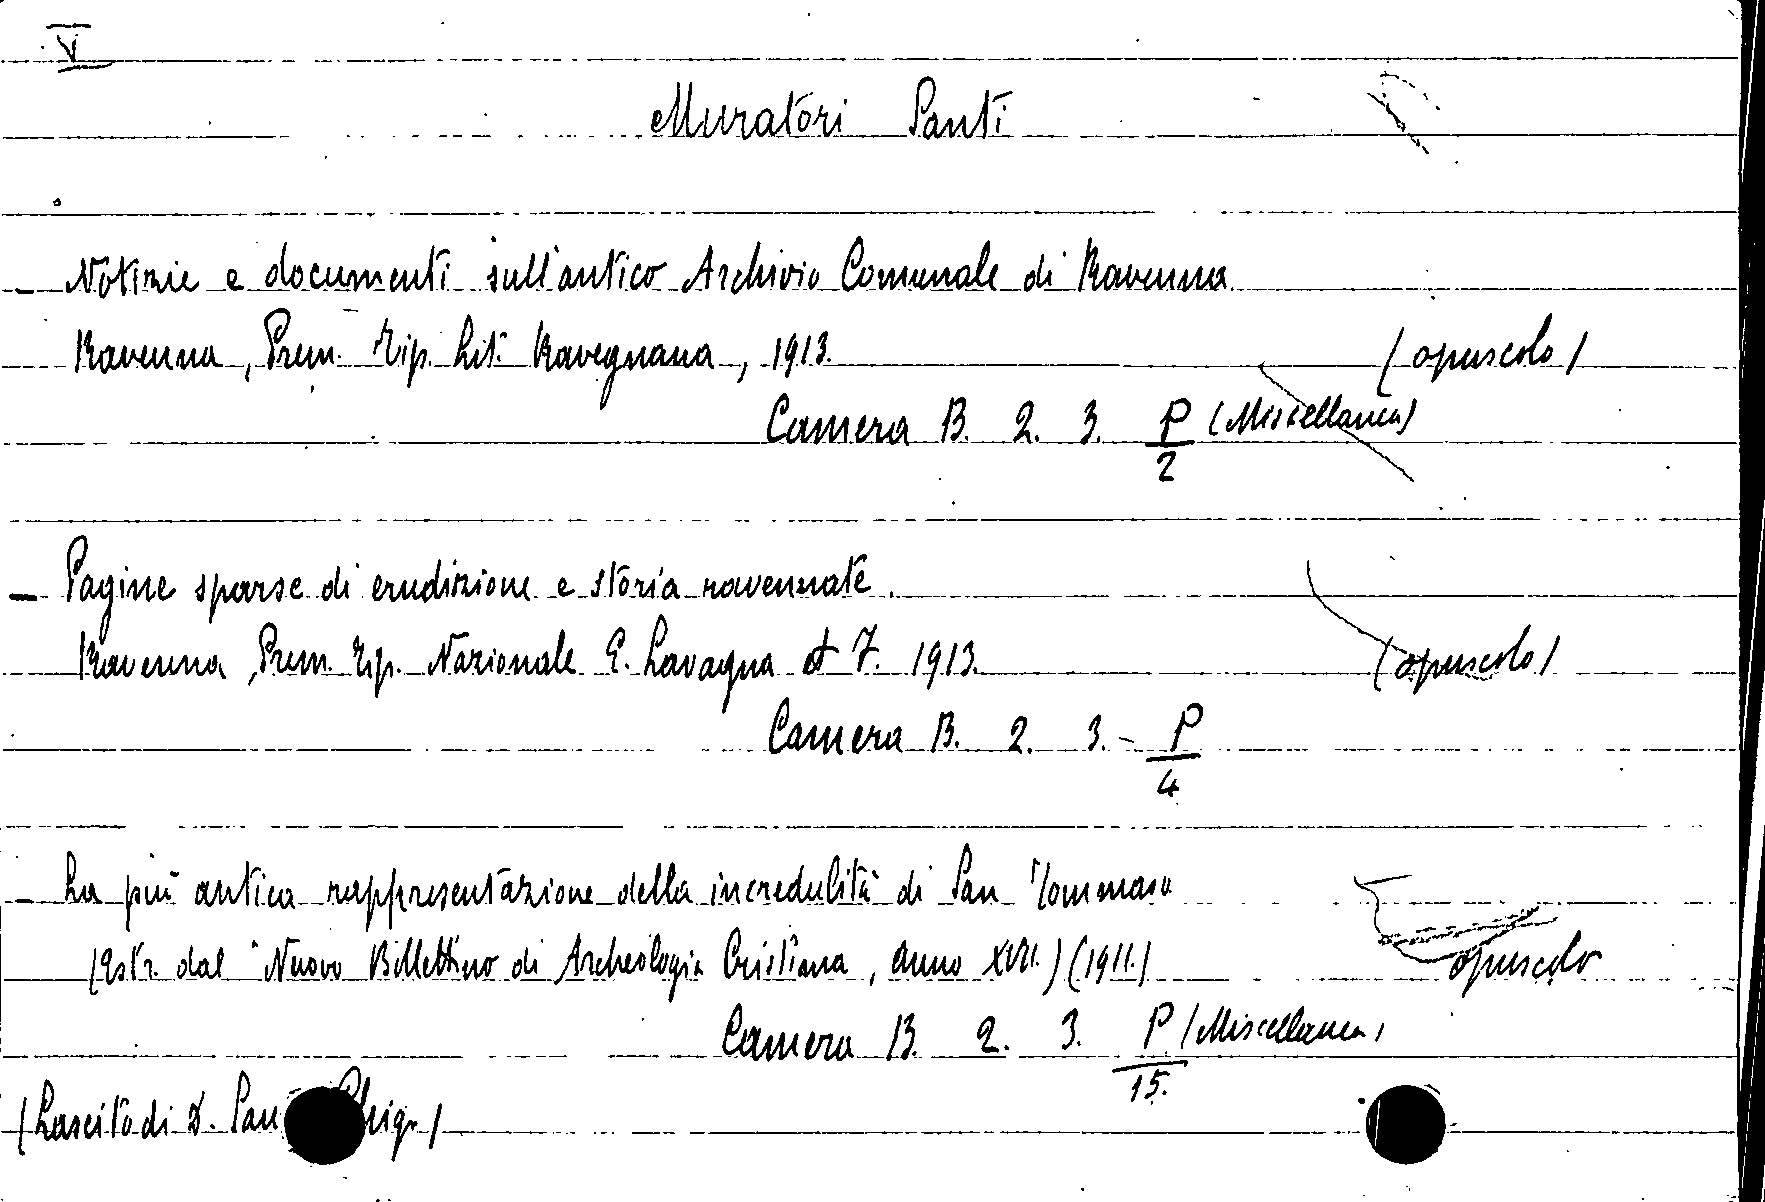 V
Muratori Santi
- Notizie e documenti sull'antico Archivio Comunale di Ravenna
Ravenna, Prem. Tip. Lit. Ravegnana, 1913. (opuscolo)
Camera B. 2. 3. P/2 (Miscellanea)
- Pagine sparse di erudizione e storia ravennate.
Ravenna, Prem. Tip. Nazionale E. Lavagna et F. 1913. (opuscolo)
Camera B. 2. 3. - P/4
- La più antica rappresentazione della incredulità di San Tommaso
(Estr. dal "Nuovo Bullettino di Archeologia Cristiana, Anno XVII.) (1911.) opuscolo
Camera B. 2. 3. P/15. (Miscellanea)
(Lascito di D.